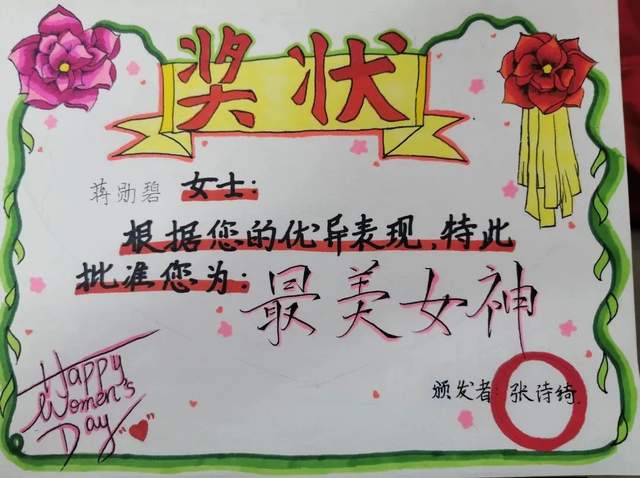 奖状
蒋勋碧 女士:
根据您的优异表现,特此
批准您为:
最美女神
颁发者:张诗绮
Happy
Women's
Day